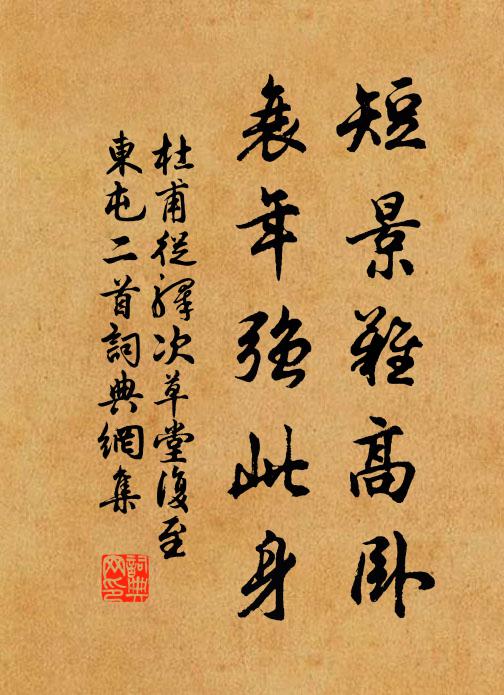 短景難高臥
衰年强此身
杜甫從驛次草堂復至
東屯二首詞典網集
詞典
网印